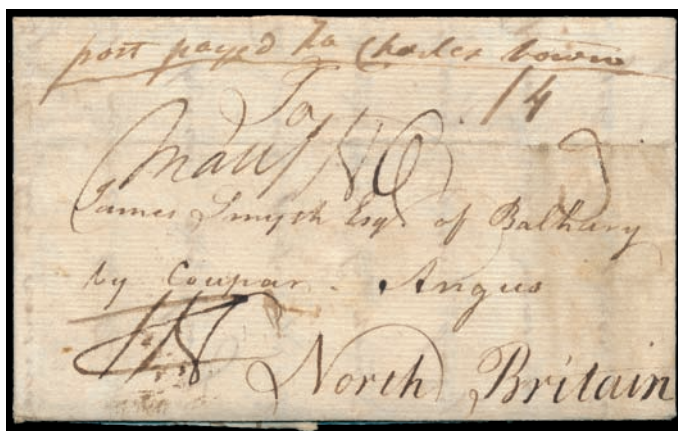 post payed to Charles town
14
To
James Smyth Esqr of Balhary
by Coupar. Angus
North Britain